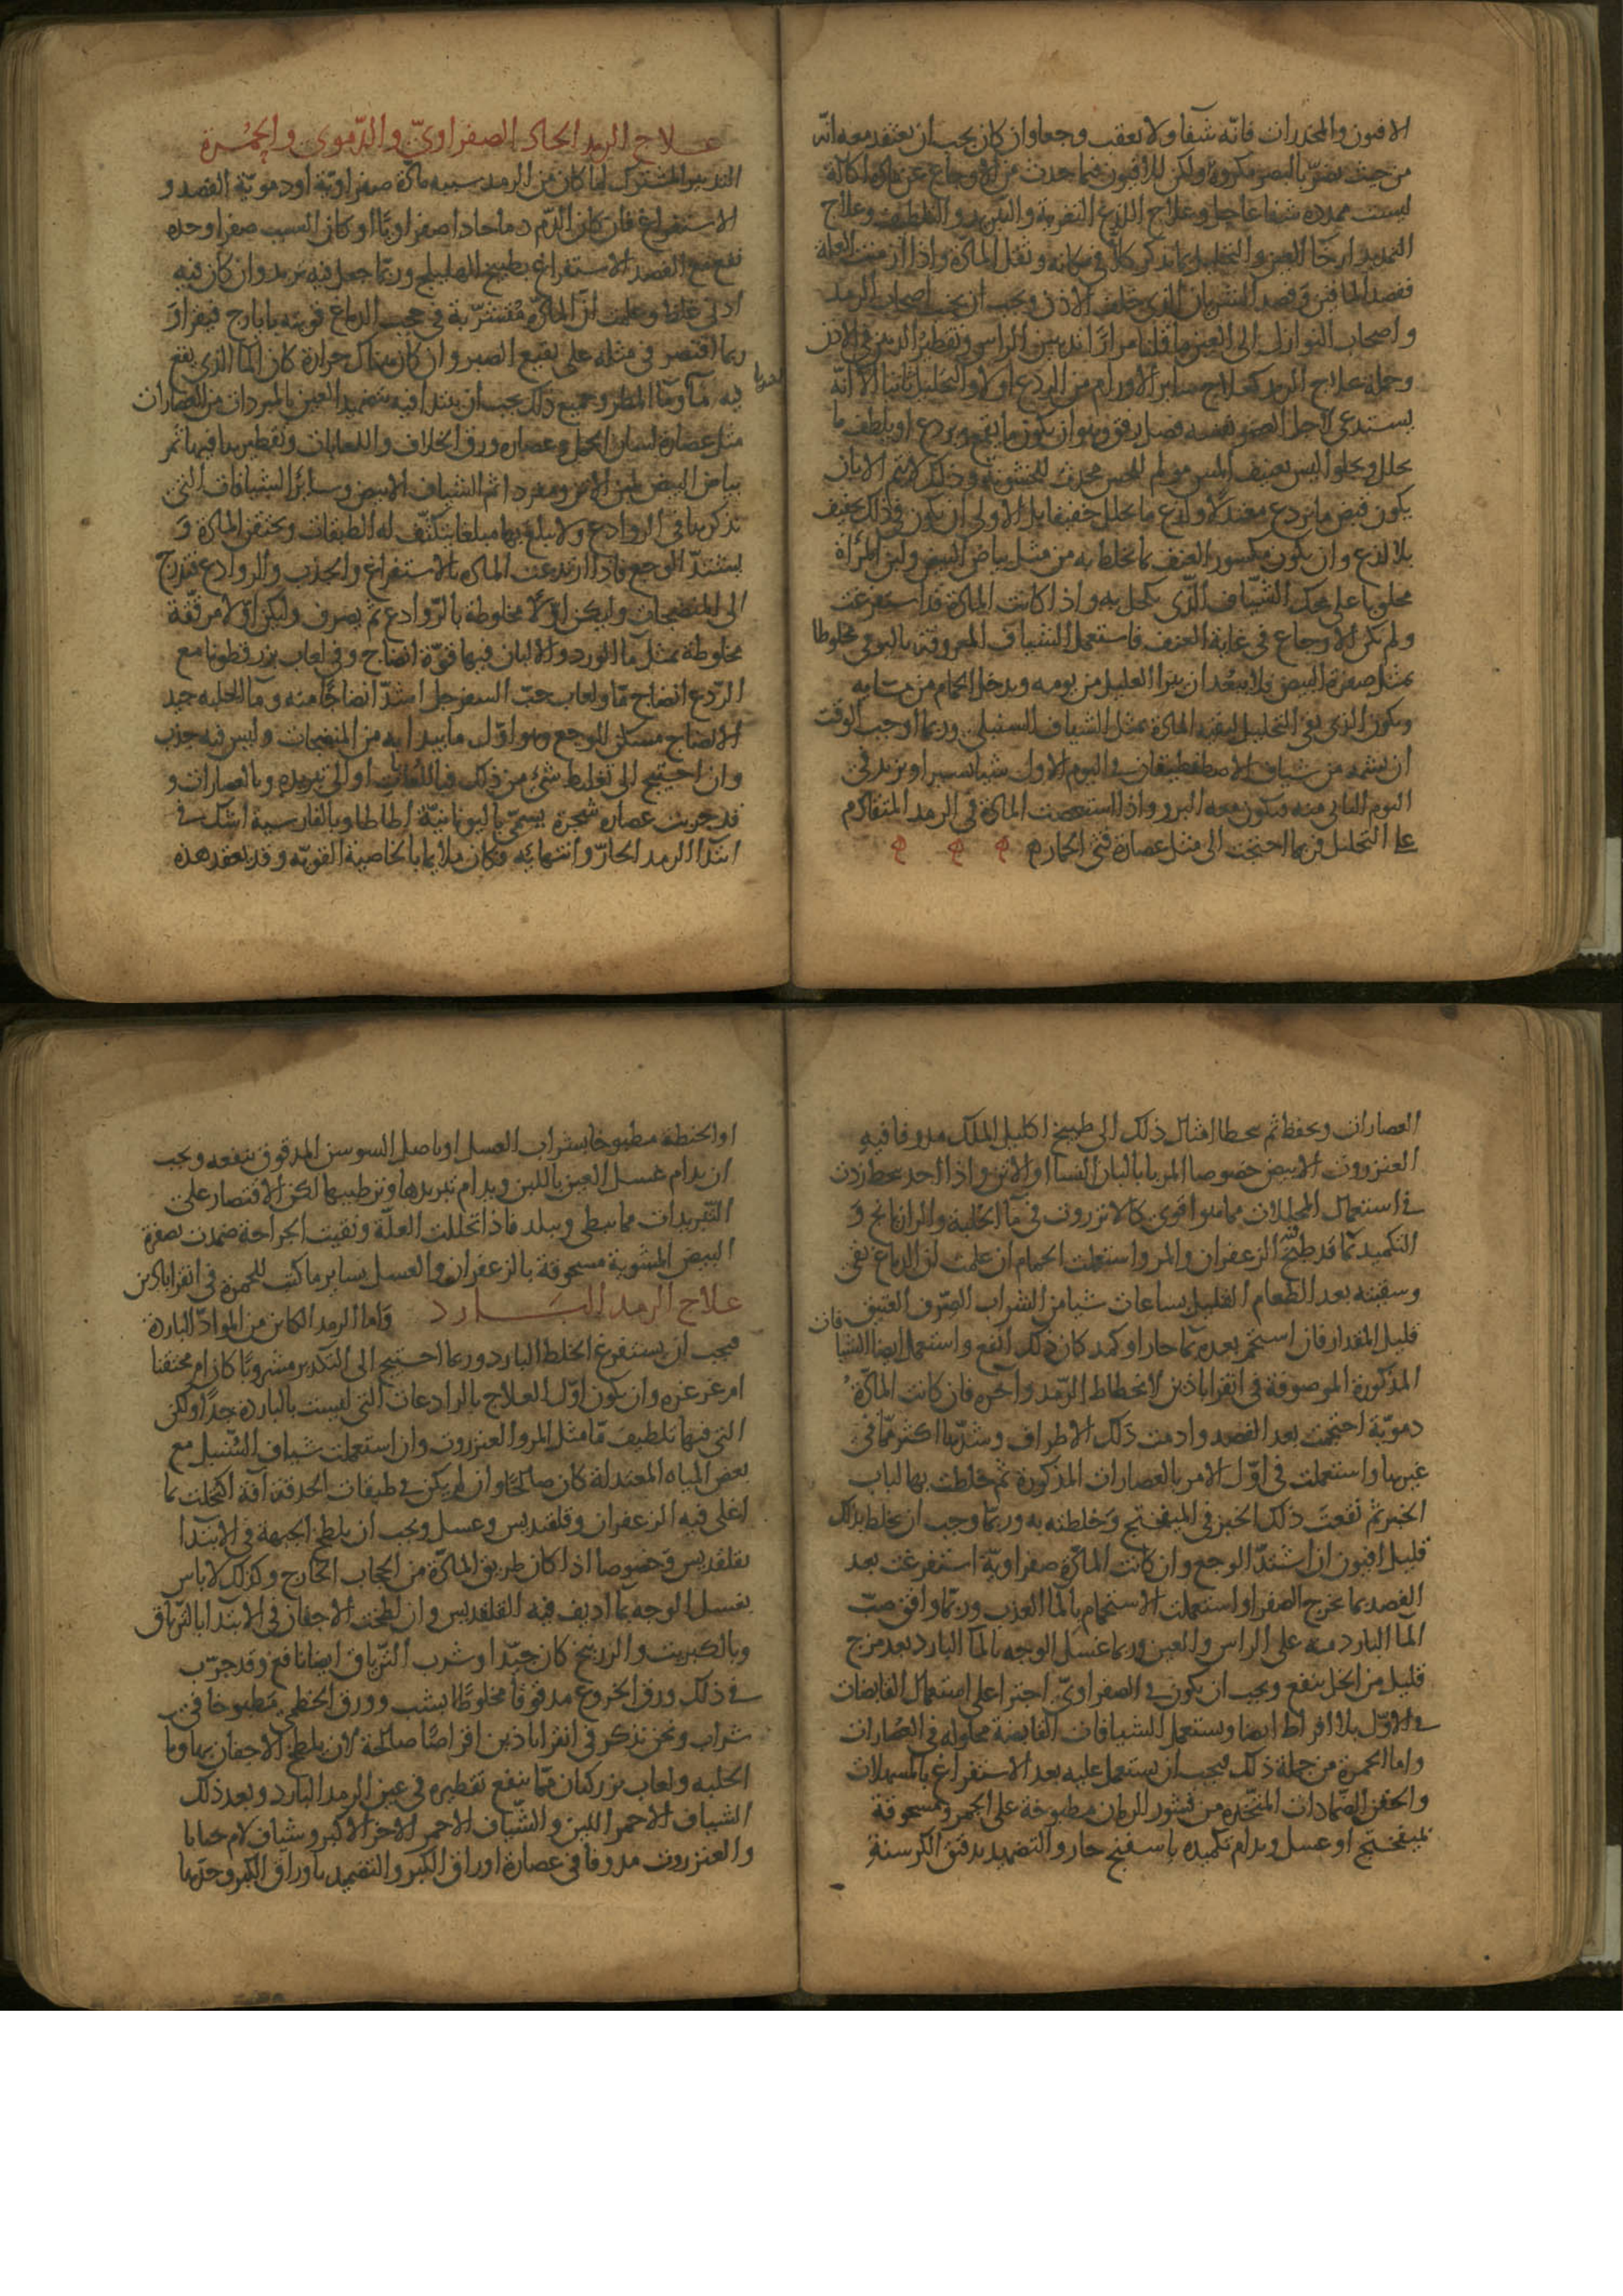 الافيون والمخدرات فانه شفا ولا يعقب وجعا وان كان يجب ان يعتقد معه انه
من حيث يضر بالبصر مكروه ولكن للافيون فيما حدث من الاوجاع عن مادة اكالة
ليست ممددة شفا عاجل وعلاج اللذع التغرية والتبريد والتلطيف وعلاج
التمديد ارخا العين والتحليل بما نذكر كلا في مكانه ونقل المادة واذا ازمنت العلة
ففصد الماقين وفصد الشريان الذي خلف الاذن ويجب ان يجتنب اصحاب الرمد
واصحاب النوازل الى العين ما قلنا مرارا تدهين الراس وتقطير الدهن في الاذن
وجملة علاج الرمد كعلاج ساير الاورام من الردع اولا والتحليل ثانيا الا انه
يستدعي لاجل العضو نفسه فضل رفق وهو ان يكون ما يقمع ويردع او يلطف ما
يحلل ويجلو ليس بعنيف المس مولم للحس محدث للخشونة وذلك لا يتم الا بان
يكون قبض ما يردع معتدلا ولذع ما يحلل خفيفا بل الاولى ان يكون في ذلك تجفيف
بلا لذع وان يكون مكسور العنف بما يخلط به من مثل بياض البيض ولبن المرأة
محلوبا على محك الشياف الذي يكحل به واذا كانت المادة قد استفرغت
ولم تكن الاوجاع في غاية العنف فاستعمل الشياف المعروف باليومي مخلوطا
بمثل صفرة البيض فلا يبعد ان يبرا العليل من يومه ويدخل الحمام من مسايه
ويكون الذي بقي التحليل لبقية المادة بمثل الشياف السنبلي وربما اوجب الوقت
ان يشمه من شياف الاصطفطيقان في اليوم الاول شيا يسيرا ويزيد في
اليوم الثاني منه فيكون معه البرو واذا استعصت المادة في الرمد المتقادم
على التحليل فربما احتجت الى مثل عصارة قثى الحمار
علاج الرمد الحاد الصفراوي والدموي والحمرة
التدبير المشترك لما كان من الرمد سببه مادة صفراوية او دموية الفصد و
الاستفراغ فان كان الدم دما حادا صفراويا او كان السبب صفرا وحده
نفع مع الفصد الاستفراغ بطبيخ الهليلج وربما جعل فيه تربد وان كان فيه
ادنى غلظ وعلمت ان المادة متشربة في حجب الدماغ قويته بايارج فيقرا و
ربما اقتصر في مثله على نقيع الصبر وان كان هناك حرارة كان الما الذي ينقع
فيه ما وما المطر وجميع ذلك يجب ان يبتدا فيه بتضميد العين بالمبردات من العصارات
مثل عصارة لسان الحمل وعصارة ورق الخلاف واللعابات وتقطيرها فيها ثم
بياض البيض بلبن الاتن ومفردا ثم الشياف الابيض وسائر الشيافات التي
نذكرها في الروادع ولا يبلغ بها مبلغا يتكثف له الطبقات ويحتقن المادة و
يشتد الوجع فاذا ارتدعت المادة بالاستفراغ والجذب والروادع فتدرج
الى المنضجات وليكن اولا مخلوطة بالروادع ثم يصرف وليكن اولا مرققة
مخلوطة بمثل ما الورد والالبان فيها قوة انضاج وفي لعاب بزر قطونا مع
الردع انضاج ما ولعاب حب السفرجل اشد انضاجا منه وما الحلبه جيد
الانضاج مسكن للوجع وهو اول ما يبدا به من المنضجات وليس فيه جذب
وان احتيج الى تغليظ شئ من ذلك فباللعاب او الى تبريده وبالعصارات و
قد جربت عصارة شجرة يسمى باليونانية اطاطا وبالفارسية اشك في
ابتدا الرمد الحار وانتهائه فكان ملايما بالخاصية القوية وقد يعقد هذه
العصارات ويحفظ ثم يتخطا امثال ذلك الى طبيخ اكليل الملك مدوفا فيه
العنزروت الابيض خصوصا المربا بالبان النسا او الاتن واذا اخذ ينحط زدت
في استعمال المحللات مما هو اقوى كالانزروت في ما الحلبة والرازيانج و
التكميد بما قد طبخ فيه الزعفران والمر واستعملت الحمام ان علمت ان الدماغ نقي
وسقيته بعد الطعام القليل بساعات شيا من الشراب الصرف العتيق
قليل المقدار فان استحم بعده بما حار او كمد كان ذلك انفع واستعمل ايضا الشيافات
المذكورة الموصوفة في اقراباذين لانحطاط الرمد واخره فان كانت المادة
دموية احتجمت بعد الفصد وادمت ذلك الاطراف وشدها اكثر مما في
غيرها واستعملت في اول الامر بالعصارات المذكورة ثم خلطت بها لباب
الخبز ثم نقعت ذلك الخبز في الميفختج وخلطته به وربما وجب ان يخلط بذلك
قليل افيون ان اشتد الوجع وان كانت المادة صفراوية استفرغت بعد
الفصد بما يخرج الصفرا واستعملت الاستحمام بالما العذب وربما وافق صب
الما البارد منه على الراس والعين وربما غسل الوجه بالما البارد بعد مزج
قليل من الخل ينفع ويجب ان يكون في الصفراوي اجترا على استعمال القابضات
في الاول بلا افراط ايضا ويستعمل الشيافات القابضة محلوله في العصارات
واما الحمرة من جملة ذلك فيجب ان يستعمل عليه بعد الاستفراغ بالمسهلات
والحقن الضمادات المتخذه من قشور الرمان مطبوخة على الجمر ومسحوقة
بميفختج او عسل ويدام تكميده باسفنج حار والتضميد بدقيق الكرسنة
او الحنطة مطبوخا بشراب العسل او باصل السوسن المدقوق ينفعه ويجب
ان يدام غسل العين باللبن ويدام تبريدها وترطيبها لكن الاقتصار على
التبريدات مما يبطى ويبلد فاذا تحللت العلة وبقيت الجراحة ضمدت بصفرة
البيض المشوية مسحوقة بالزعفران والعسل بساير ما كتب للحمرة في اقراباذين
علاج الرمد البارد واما الرمد الكاين من المواد الباردة
فيجب ان يستفرغ الخلط البارد وربما احتيج الى التكرير مشروبا كان ام محتقنا
ام غرغره وان يكون اول العلاج بالرادعات التي ليست بالباردة جدا ولكن
التي فيها تلطيف ما مثل المر والعنزروت وان استعملت شياف السنبل مع
بعض المياه المعتدلة كان صالحا وان لم يكن في طبقات الحدقة آفة اكتحلت بما
اغلى فيه الزعفران وقلقديس وعسل ويجب ان يلطخ الجبهة في الابتدا
بقلقديس وخصوصا اذا كان طريق المادة من الحجاب الخارج وكذلك لا باس
بغسل الوجه بما اديف فيه القلقديس وان لطخت الاجفان في الابتدا بالترياق
وبالكبريت والزرنيخ كان جيدا وشرب الترياق ايضا نافع وقد جرب
في ذلك ورق الخروع مدقوقا مخلوطا بشب وورق الخطمي مطبوخا في
شراب ونحن نذكر في اقراباذين اقراصا صالحة لان يلطخ الاجفان بها وما
الحلبه ولعاب بزر كتان مما ينفع تقطيره في عين الرمد البارد وبعد ذلك
الشياف الاحمر اللين والشياف الاحمر الاخر الاكبر وشياف
والعنزروت مدوفا في عصارة اوراق الكبر والتضميد باوراق الكبر وحدها